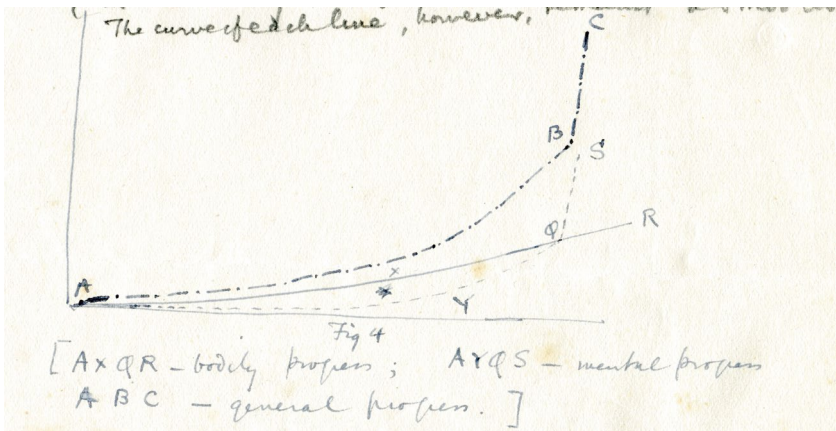 The curve of each line, however,
C
B
S
R
Q
A
x
Y
Fig 4
[AXQR – bodily progress; AYQS – mental progress
ABC – general progress.]